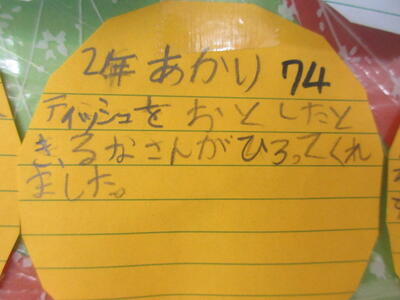 2年 あかり 74
ティッシュを おとしたと
き、るなさんがひろってくれ
ました。